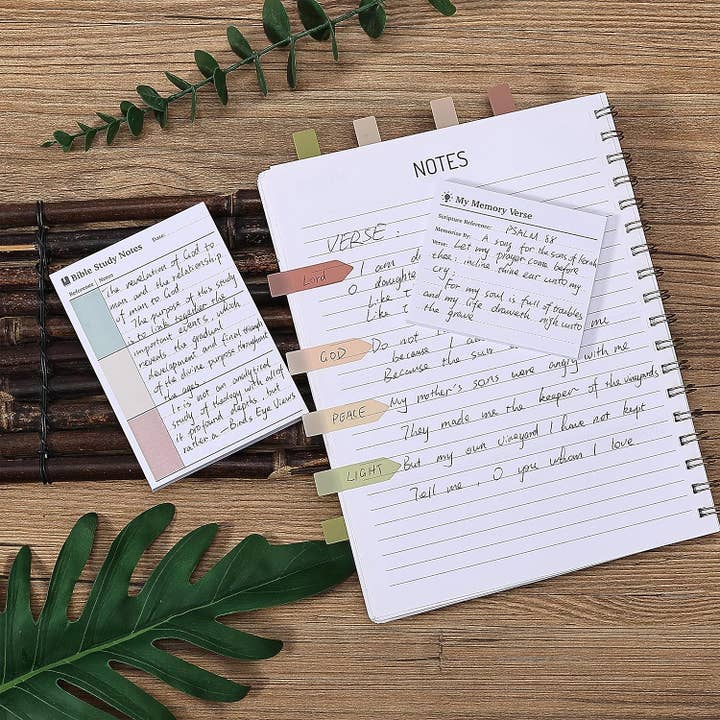 Bible Study Notes
Date:
Reference: Notes
The revelation of God to
man and the relationship
of man to God
The purpose of this study
is to link together the
important events, which
reveals the gradual
development and final
of the divine purpose throughout
the ages.
It is not an analytical
study of theology with all of
it profound depths, but
rather a - Birds Eye Views
NOTES
VERSE:
I am d
O daughte
Like t
Like t
Do not
because I a
Because the sun me
My mother's sons were angry with me
They made me the keeper of the vineyards
But my own vineyard I have not kept
Tell me, O you whom I love
Lord
GOD
PEACE
LIGHT
My Memory Verse
Scripture Reference: PSALM 88
Memorize By: A song for the sons of Korah
Verse: Let my prayer come before
thee: incline thine ear unto my
cry;
For my soul is full of troubles
and my life draweth nigh unto
the grave